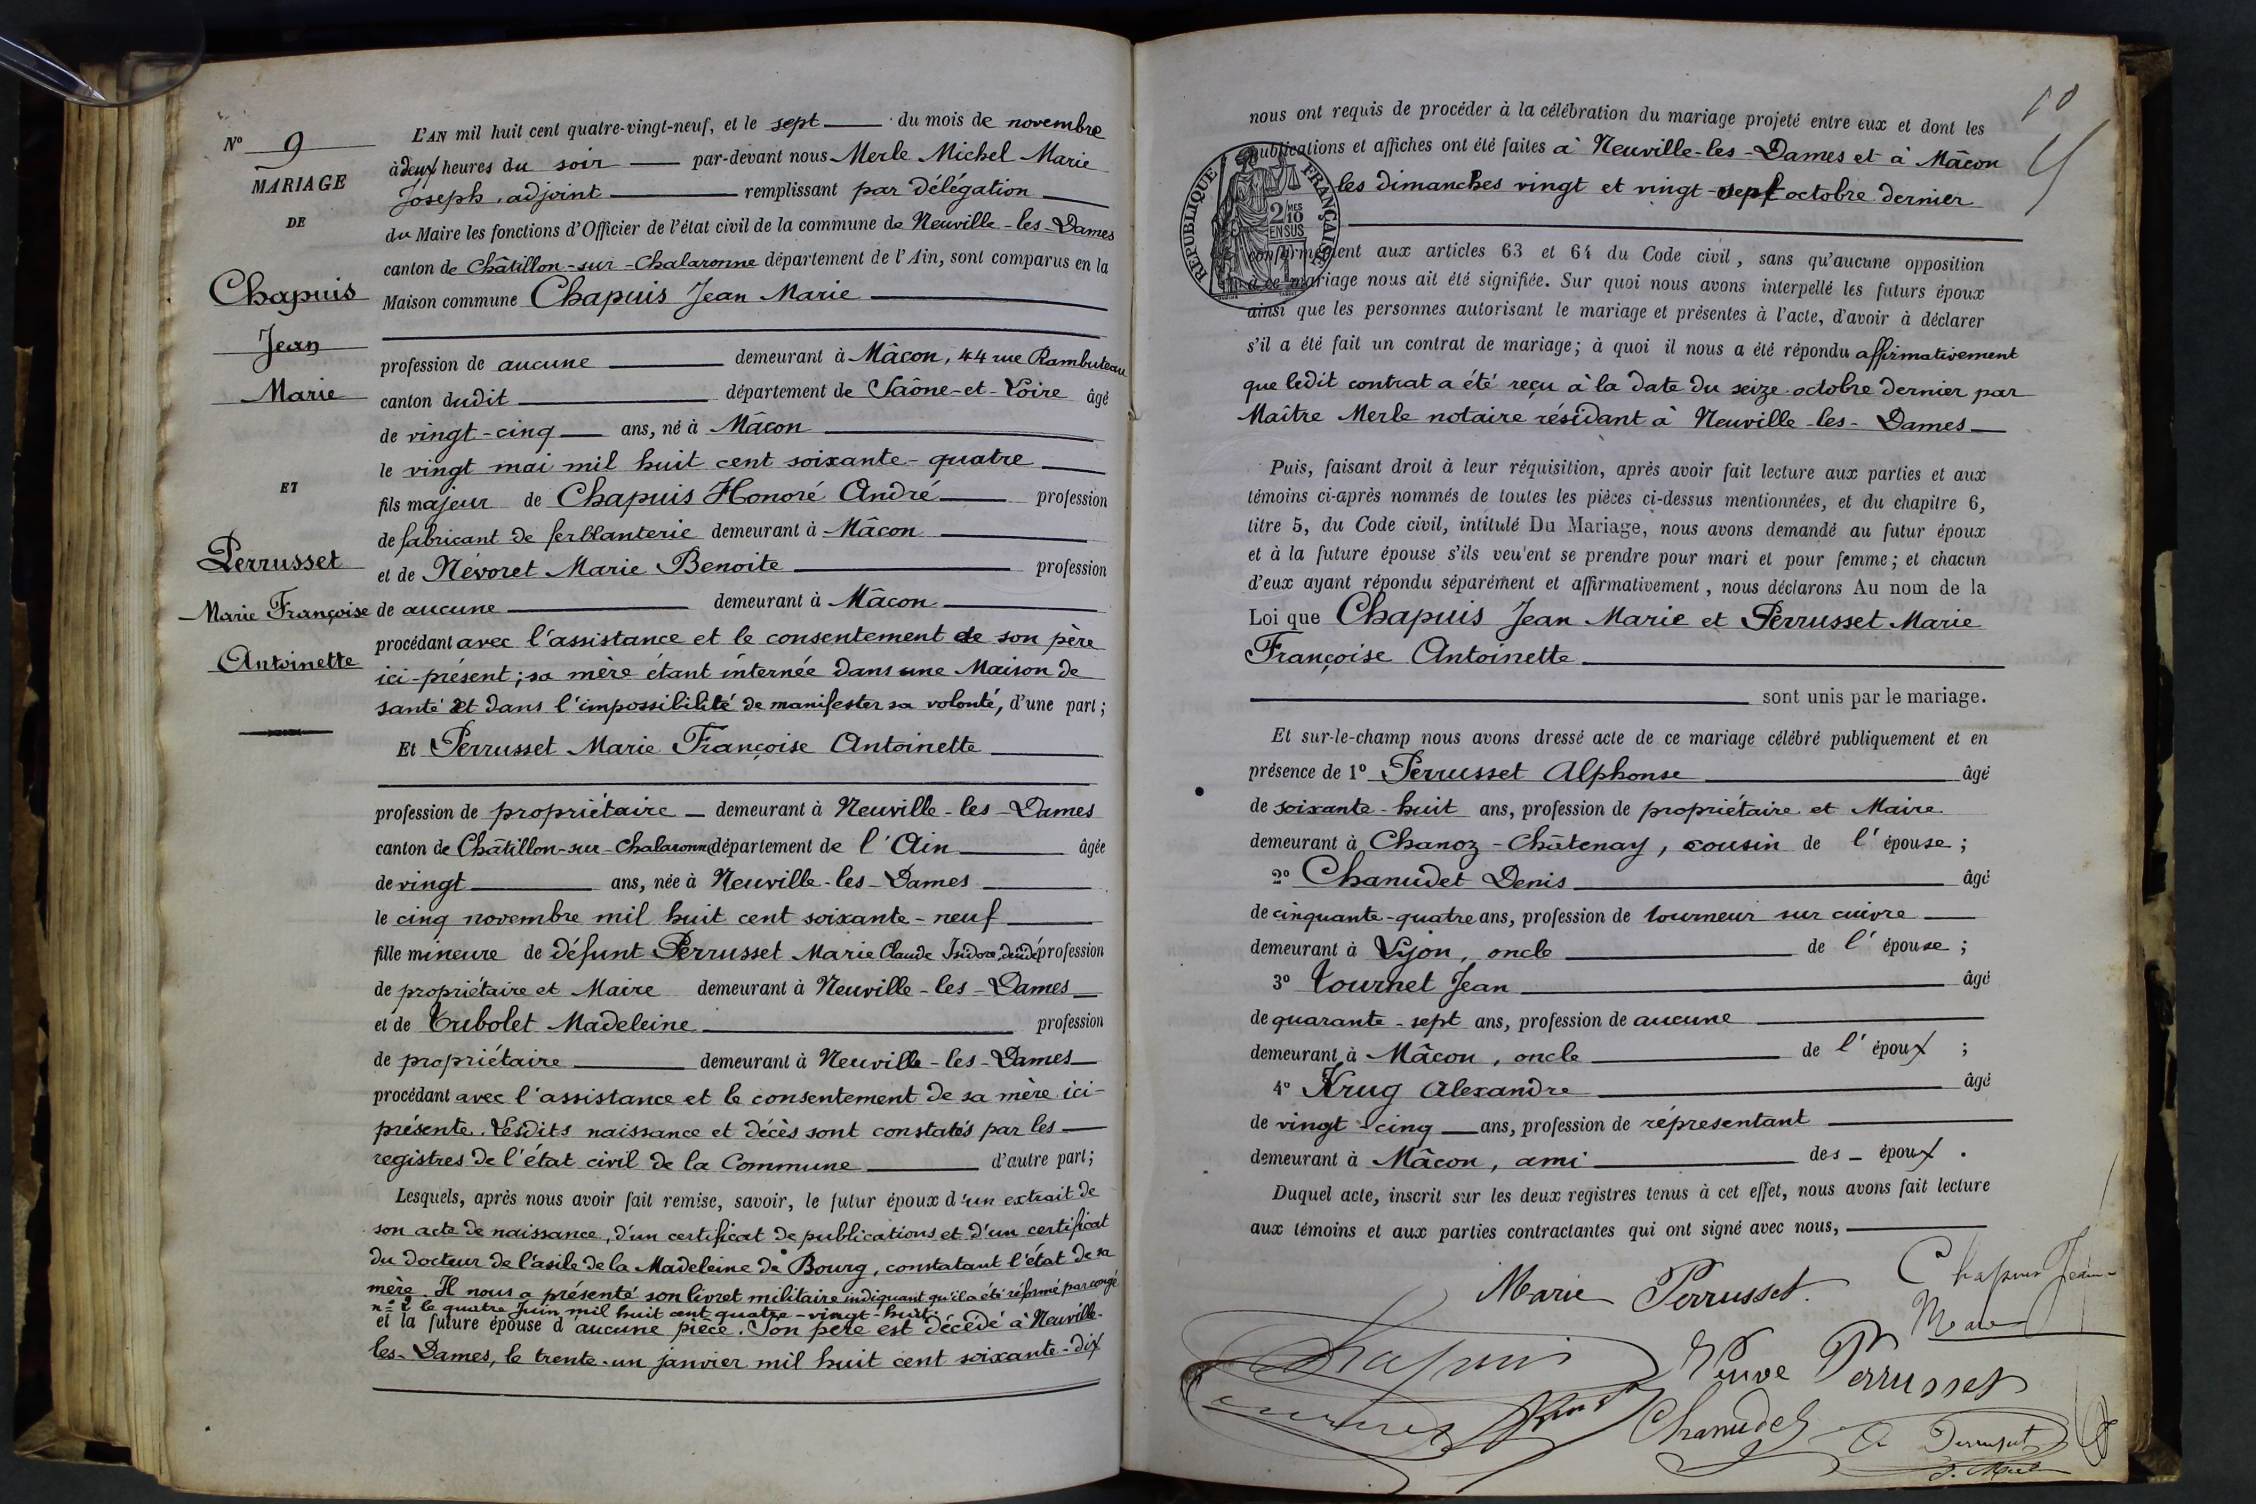 N° 9
MARIAGE
DE
Chapuis
Jean
Marie
ET
Perrusset
Marie Françoise
Antoinette
L'AN mil huit cent quatre-vingt-neuf, et le sept du mois de novembre
à deux heures du soir par-devant nous Merle Michel Marie
Joseph, adjoint remplissant par délégation
du Maire les fonctions d'Officier de l'état civil de la commune de Neuville-les-Dames
canton de Châtillon-sur-Chalaronne département de l'Ain, sont comparus en la
Maison commune Chapuis Jean Marie
profession de aucune demeurant à Mâcon, 44 rue Rambuteau
canton dudit département de Saône-et-Loire âgé
de vingt-cinq ans, né à Mâcon
le vingt mai mil huit cent soixante-quatre
fils majeur de Chapuis Honoré André profession
de fabricant de ferblanterie demeurant à Mâcon
et de Névoret Marie Benoite profession
de aucune demeurant à Mâcon
procédant avec l'assistance et le consentement de son père
ici-présent; sa mère étant internée dans une Maison de
santé et dans l'impossibilité de manifester sa volonté, d'une part;
Et Perrusset Marie Françoise Antoinette
profession de propriétaire demeurant à Neuville-les-Dames
canton de Châtillon-sur-Chalaronne département de l'Ain âgée
de vingt ans, née à Neuville-les-Dames
le cinq novembre mil huit cent soixante-neuf
fille mineure de défunt Perrusset Marie Claude Isidore, profession
de propriétaire et Maire demeurant à Neuville-les-Dames
et de Tribolet Madeleine profession
de propriétaire demeurant à Neuville-les-Dames
procédant avec l'assistance et le consentement de sa mère ici-
présente. Lesdits naissance et décès sont constatés par les
registres de l'état civil de la Commune d'autre part;
Lesquels, après nous avoir fait remise, savoir, le futur époux d'un extrait de
son acte de naissance, d'un certificat de publications et d'un certificat
du docteur de l'asile de la Madeleine de Bourg, constatant l'état de sa
mère. Il nous a présenté son livret militaire indiquant qu'il a été réformé par congé
n° 2 le quatre Juin mil huit cent quatre-vingt-huit.
et la future épouse d'aucune pièce. Son père est décédé à Neuville-
les-Dames, le trente-un janvier mil huit cent soixante-dix
10
nous ont requis de procéder à la célébration du mariage projeté entre eux et dont les
publications et affiches ont été faites à Neuville-les-Dames et à Mâcon
les dimanches vingt et vingt-sept octobre dernier
RÉPUBLIQUE FRANÇAISE
2 MES
10
EN SUS
conformément aux articles 63 et 64 du Code civil, sans qu'aucune opposition
à ce mariage nous ait été signifiée. Sur quoi nous avons interpellé les futurs époux
ainsi que les personnes autorisant le mariage et présentes à l'acte, d'avoir à déclarer
s'il a été fait un contrat de mariage; à quoi il nous a été répondu affirmativement
que ledit contrat a été reçu à la date du seize octobre dernier par
Maître Merle notaire résidant à Neuville-les-Dames
Puis, faisant droit à leur réquisition, après avoir fait lecture aux parties et aux
témoins ci-après nommés de toutes les pièces ci-dessus mentionnées, et du chapitre 6,
titre 5, du Code civil, intitulé Du Mariage, nous avons demandé au futur époux
et à la future épouse s'ils veu'ent se prendre pour mari et pour femme; et chacun
d'eux ayant répondu séparément et affirmativement, nous déclarons Au nom de la
Loi que Chapuis Jean Marie et Perrusset Marie
Françoise Antoinette
sont unis par le mariage.
Et sur-le-champ nous avons dressé acte de ce mariage célébré publiquement et en
présence de 1° Perrusset Alphonse âgé
de soixante-huit ans, profession de propriétaire et Maire
demeurant à Chanoz-Châtenay, cousin de l'épouse;
2° Chanudet Denis âgé
de cinquante-quatre ans, profession de tourneur sur cuivre
demeurant à Lyon, oncle de l'épouse;
3° Tournet Jean âgé
de quarante-sept ans, profession de aucune
demeurant à Mâcon, oncle de l'époux;
4° Krug Alexandre âgé
de vingt-cinq ans, profession de répresentant
demeurant à Mâcon, ami des époux.
Duquel acte, inscrit sur les deux registres tenus à cet effet, nous avons fait lecture
aux témoins et aux parties contractantes qui ont signé avec nous,
Marie Perrusset. Chapuis Jean
Marie
Chapuis Veuve Perrusset
Chanudet A Perrusset